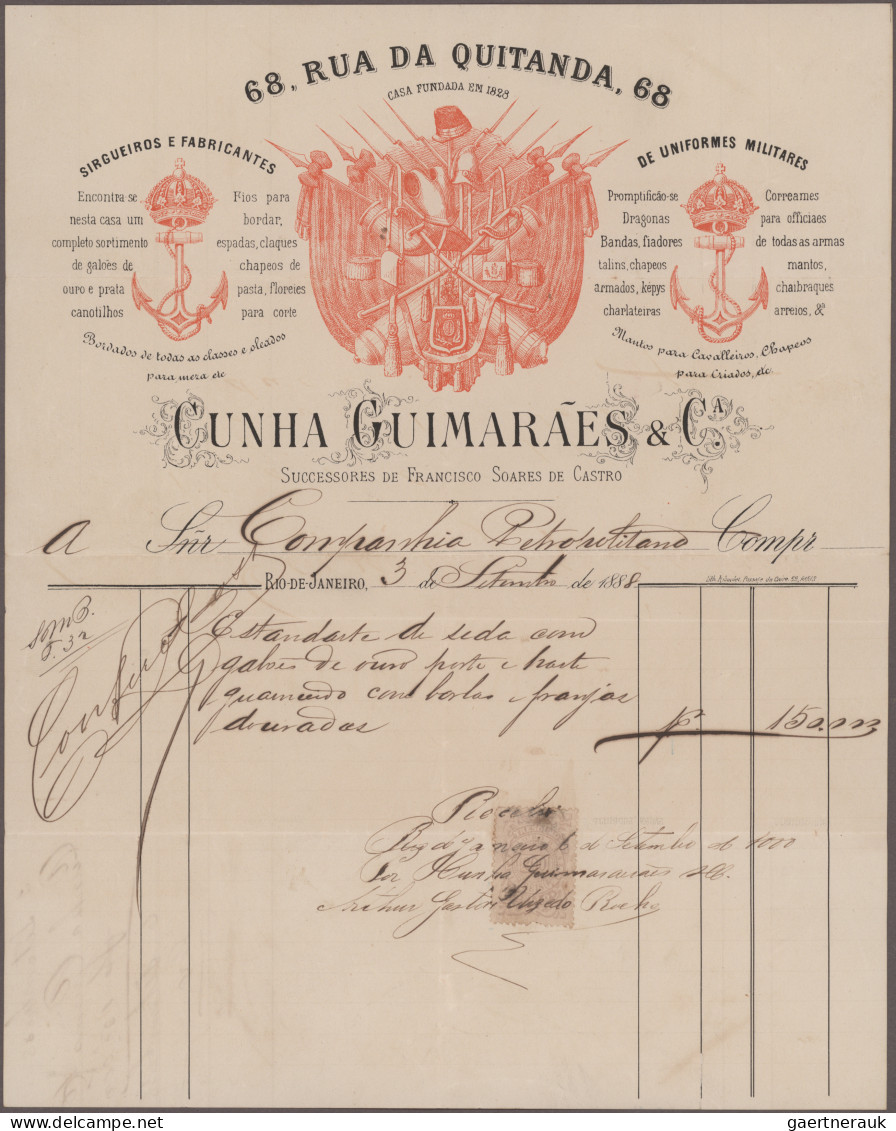 68, RUA DA QUITANDA, 68
CASA FUNDADA EM 1828
SIRGUEIROS E FABRICANTES
DE UNIFORMES MILITARES
Encontra-se
nesta casa um
completo sortimento
de galoès de
ouro e prata
canotilhos
Fios para
bordar,
espadas, claques
chapeos de
pasta, floreies
para corte
Bordados de todas as classes e oleados
para meza etc
Promptificão-se
Dragonas
Bandas, fiadores
talins, chapeos
armados, képys
charlateiras
Correames
para officiaes
de todas as armas
mantos,
chaibraques
arreios, &ª
Mantos para Cavalleiros, Chapeos
para Criados, etc.
CUNHA GUIMARÃES & Cª.
SUCCESSORES DE FRANCISCO SOARES DE CASTRO
A Snr Companhia Petropolitano Compr
RIO-DE-JANEIRO, 3 de Setembro de 1888
Estandarte de seda com
galoès de ouro porte e haste
guarnecido com borlas e franjas
douradas
150
Recebi
de Setembro de
Por Cunha Guimarães
Arthur Rocha
delcampe.net
gaertnerauk